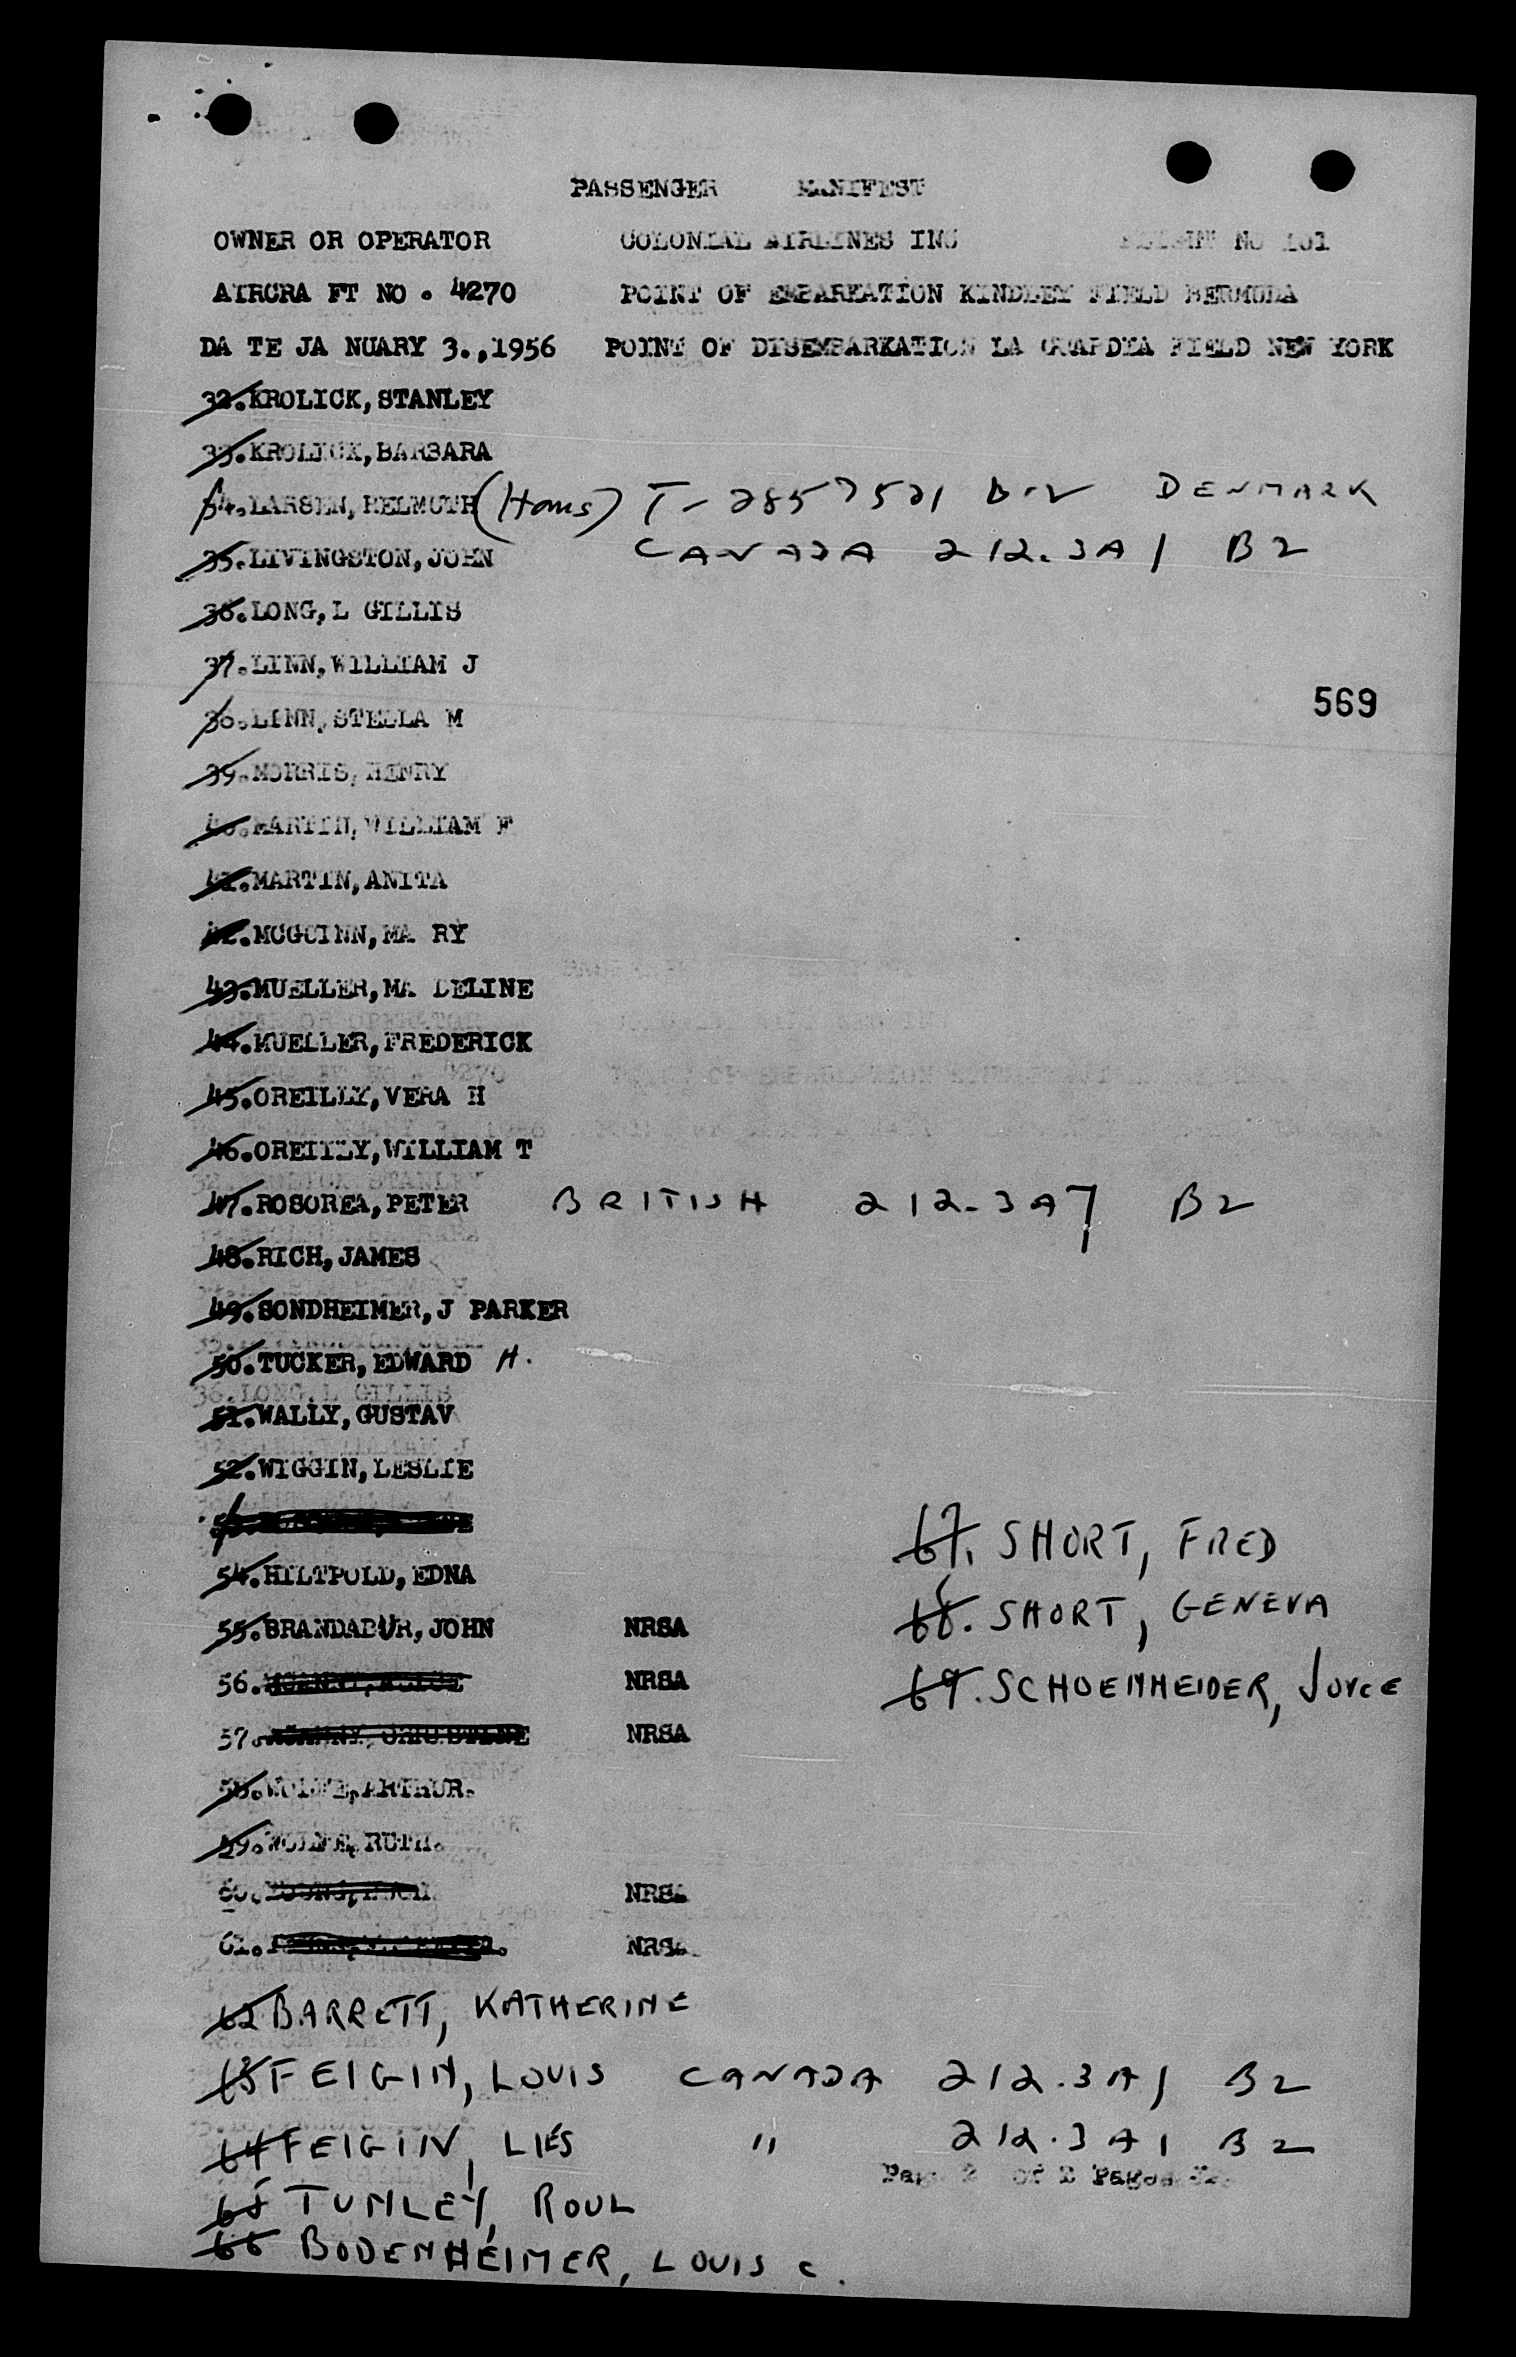 PASSENGER MANIFEST
OWNER OR OPERATOR COLONIAL AIRLINES INC FLIGHT NO 101
AIRCRA FT NO . 4270 POINT OF EMBARKATION KINDLEY FIELD BERMUDA
DA TE JA NUARY 3.,1956 POINT OF DISEMBARKATION LA GUARDIA FIELD NEW YORK
32.KROLICK,STANLEY
33.KROLICK,BARBARA
34.LARSEN,HELMUTH (Hans) T-2857521 DENMARK
35.LIVINGSTON,JOHN CANADA 212.3A1 B2
36.LONG,L GILLIS
37.LINN,WILLIAM J
38.LINN,STELLA M
569
39.MORRIS,HENRY
40.MARTIN,WILLIAM F
41.MARTIN,ANITA
42.MCGUINN,MA RY
43.MUELLER,MA DELINE
44.MUELLER,FREDERICK
45.OREILLY,VERA H
46.OREILLY,WILLIAM T
47.ROSOREA,PETER BRITISH 212.3A7 B2
48.RICH,JAMES
49.SONDHEIMER,J PARKER
50.TUCKER,EDWARD H.
51.WALLY,GUSTAV
52.WIGGIN,LESLIE
53.
67. SHORT, FRED
54.HILTPOLD,EDNA
68. SHORT, GENEVA
55.BRANDABUR,JOHN NRSA
56. NRSA
69. SCHOENHEIDER, JOYCE
57. NRSA
58.WOLFE,ARTHUR.
59.WOLFE,RUTH.
60. NRSA
61. NRSA
62 BARRETT, KATHERINE
63 FEIGIN, LOUIS CANADA 212.3A1 B2
64 FEIGIN, LIES " 212.3A1 B2
Page 2 of 2 Pages
65 TUNLEY, ROUL
66 BODENHEIMER, LOUIS C.